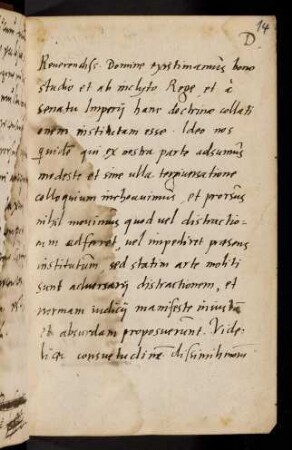 14
D.
Reverendiss. Domine existimamus bono
studio et ab inclyto Rege, et à
senatu Imperij hanc doctrinae collati
onem institutam esse. Ideo nos
quidē qui ex vestra parte adsumus
modeste et sine ulla tergiversatione
colloquium inchoavimus, et prorsus
nihil movimus quod vel distractio-
em adferret, vel impediret praesens
institutum, sed statim arte moliti
sunt adversarij distractionem, et
normam iudicij manifeste iniustā
et absurdam proposuerunt. Vide
licet consuetudinē